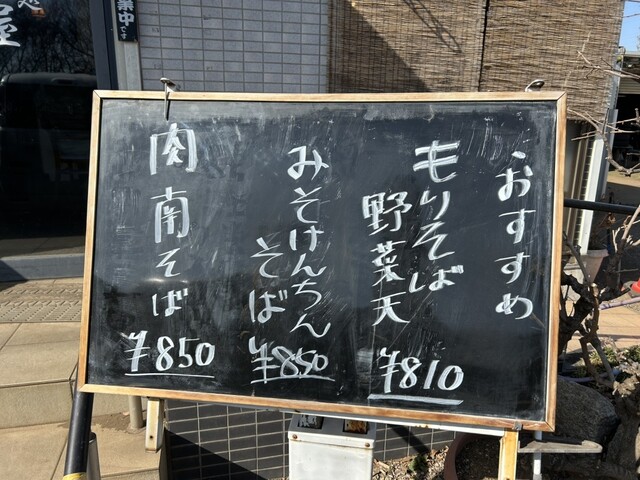 おすすめ
もりそば
野菜天
¥810
みそけんちん
そば
¥850
肉南そば
¥850
業中です